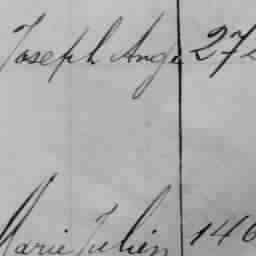 Joseph Ange 27
Marie Julien 146